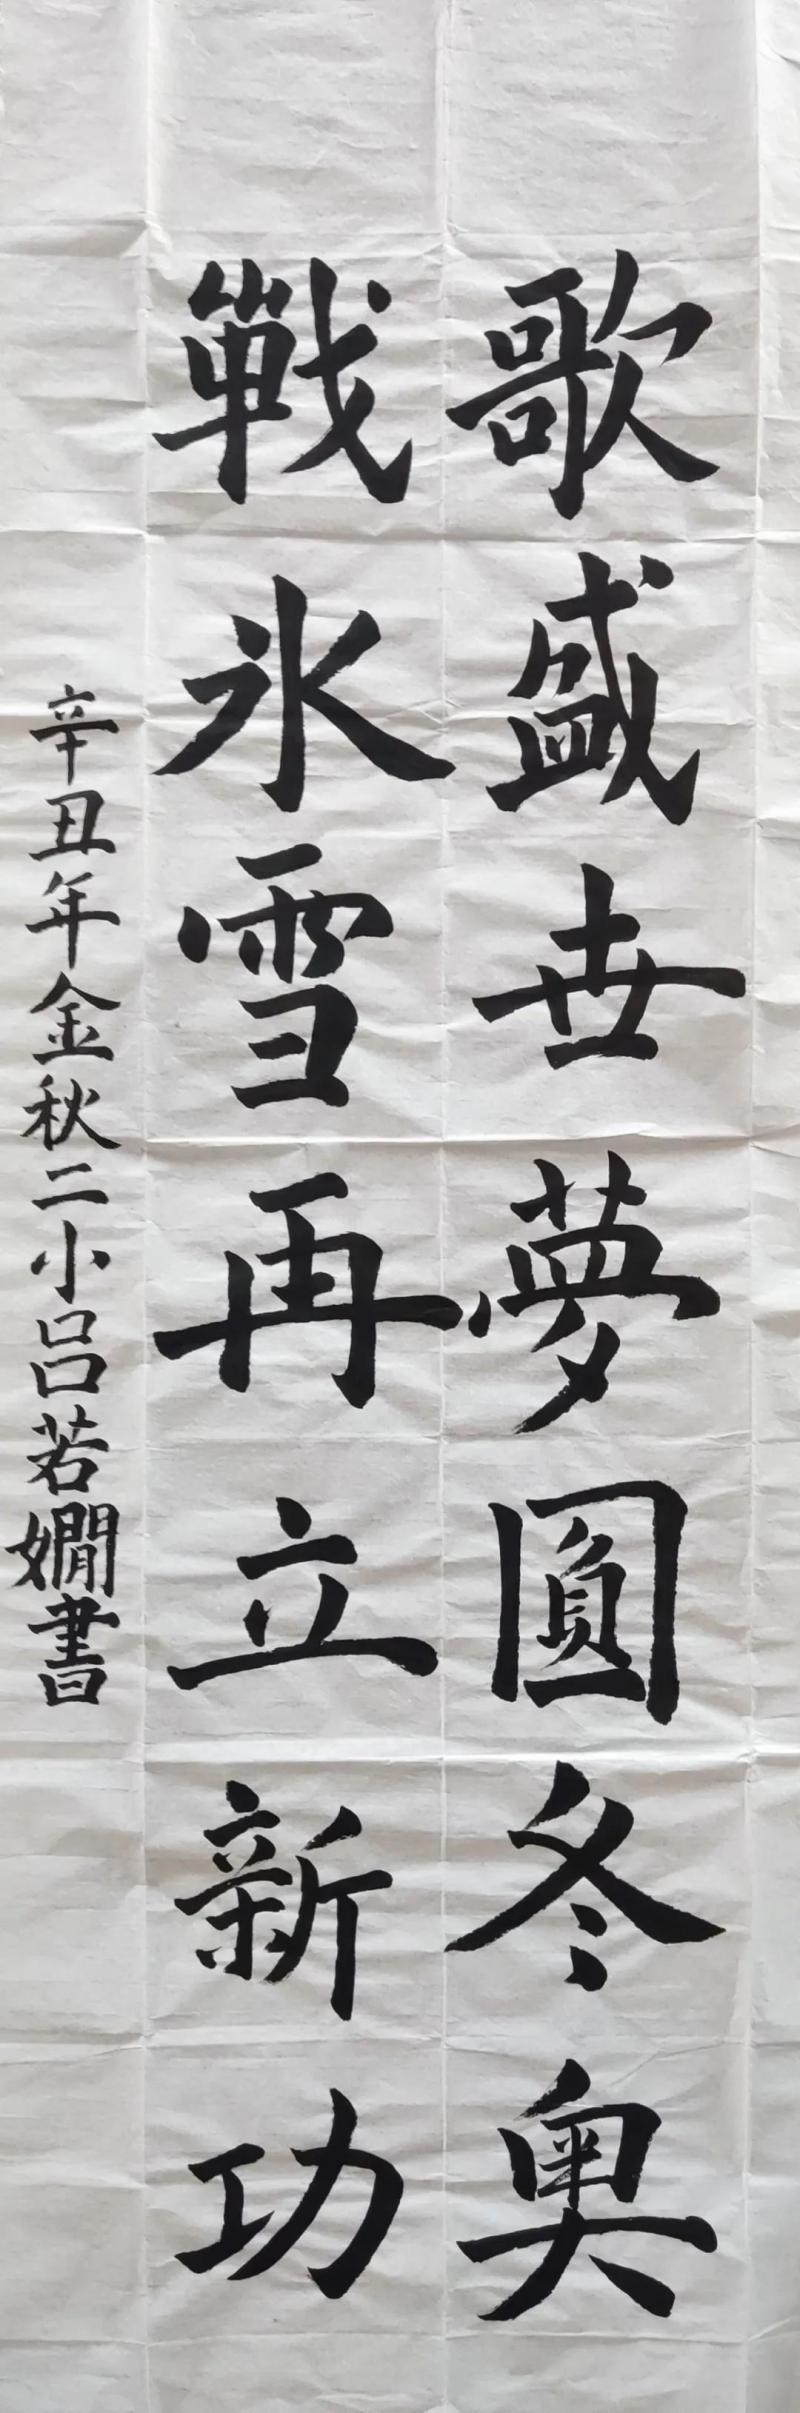 歌盛世夢圓冬奥
戰氷雪再立新功
辛丑年金秋二小吕若嫺書